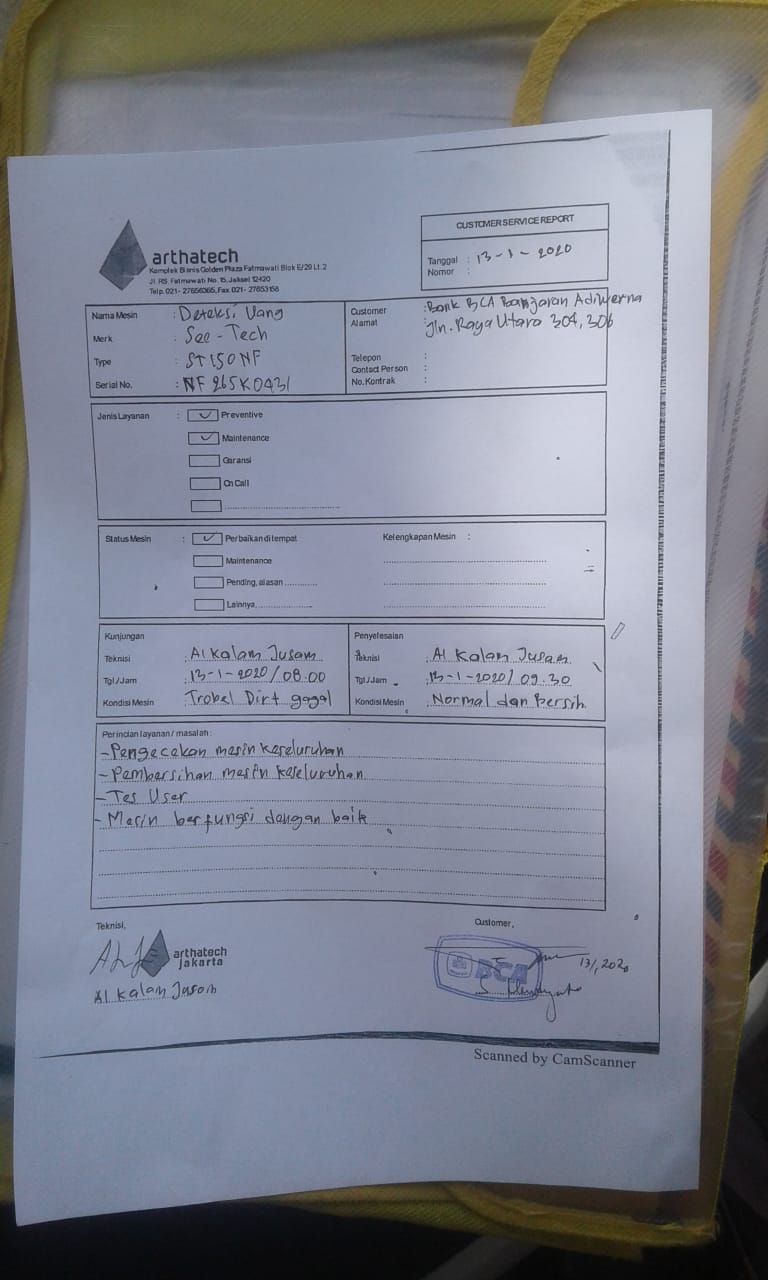 arthatech
Komplek Bisnis Golden Plaza Fatmawati Blok E/29 Lt. 2
Jl. RS. Fatmawati No. 15, Jaksel 12420
Telp. 021- 27656365, Fax. 021- 27653168
CUSTOMER SERVICE REPORT
Tanggal : 13-1-2020
Nomor :
Nama Mesin : Deteksi Uang
Merk : See-Tech
Type : ST150NF
Serial No. : NF265K0431
Customer : Bank BCA Banjaran Adiwerna
Alamat : Jln. Raya Utara 304, 306
Telepon :
Contact Person :
No. Kontrak :
Jenis Layanan : Preventive
Maintenance
Garansi
On Call
Status Mesin : Perbaikan di tempat
Maintenance
Pending, alasan
Lainnya,
Kelengkapan Mesin :
Kunjungan
Teknisi : Al Kalam Jusam
Tgl./Jam : 13-1-2020/08.00
Kondisi Mesin : Trobel Dirt gagal
Penyelesaian
Teknisi : Al Kalam Jusam
Tgl./Jam : 13-1-2020/09.30
Kondisi Mesin : Normal dan Bersih
Perincian layanan / masalah :
- Pengecekan mesin keseluruhan
- Pembersihan mesin keseluruhan
- Tes User
- Mesin berfungsi dengan baik
Teknisi,
arthatech
jakarta
Al Kalam Jusam
Customer,
BCA
13/1, 2020
Scanned by CamScanner